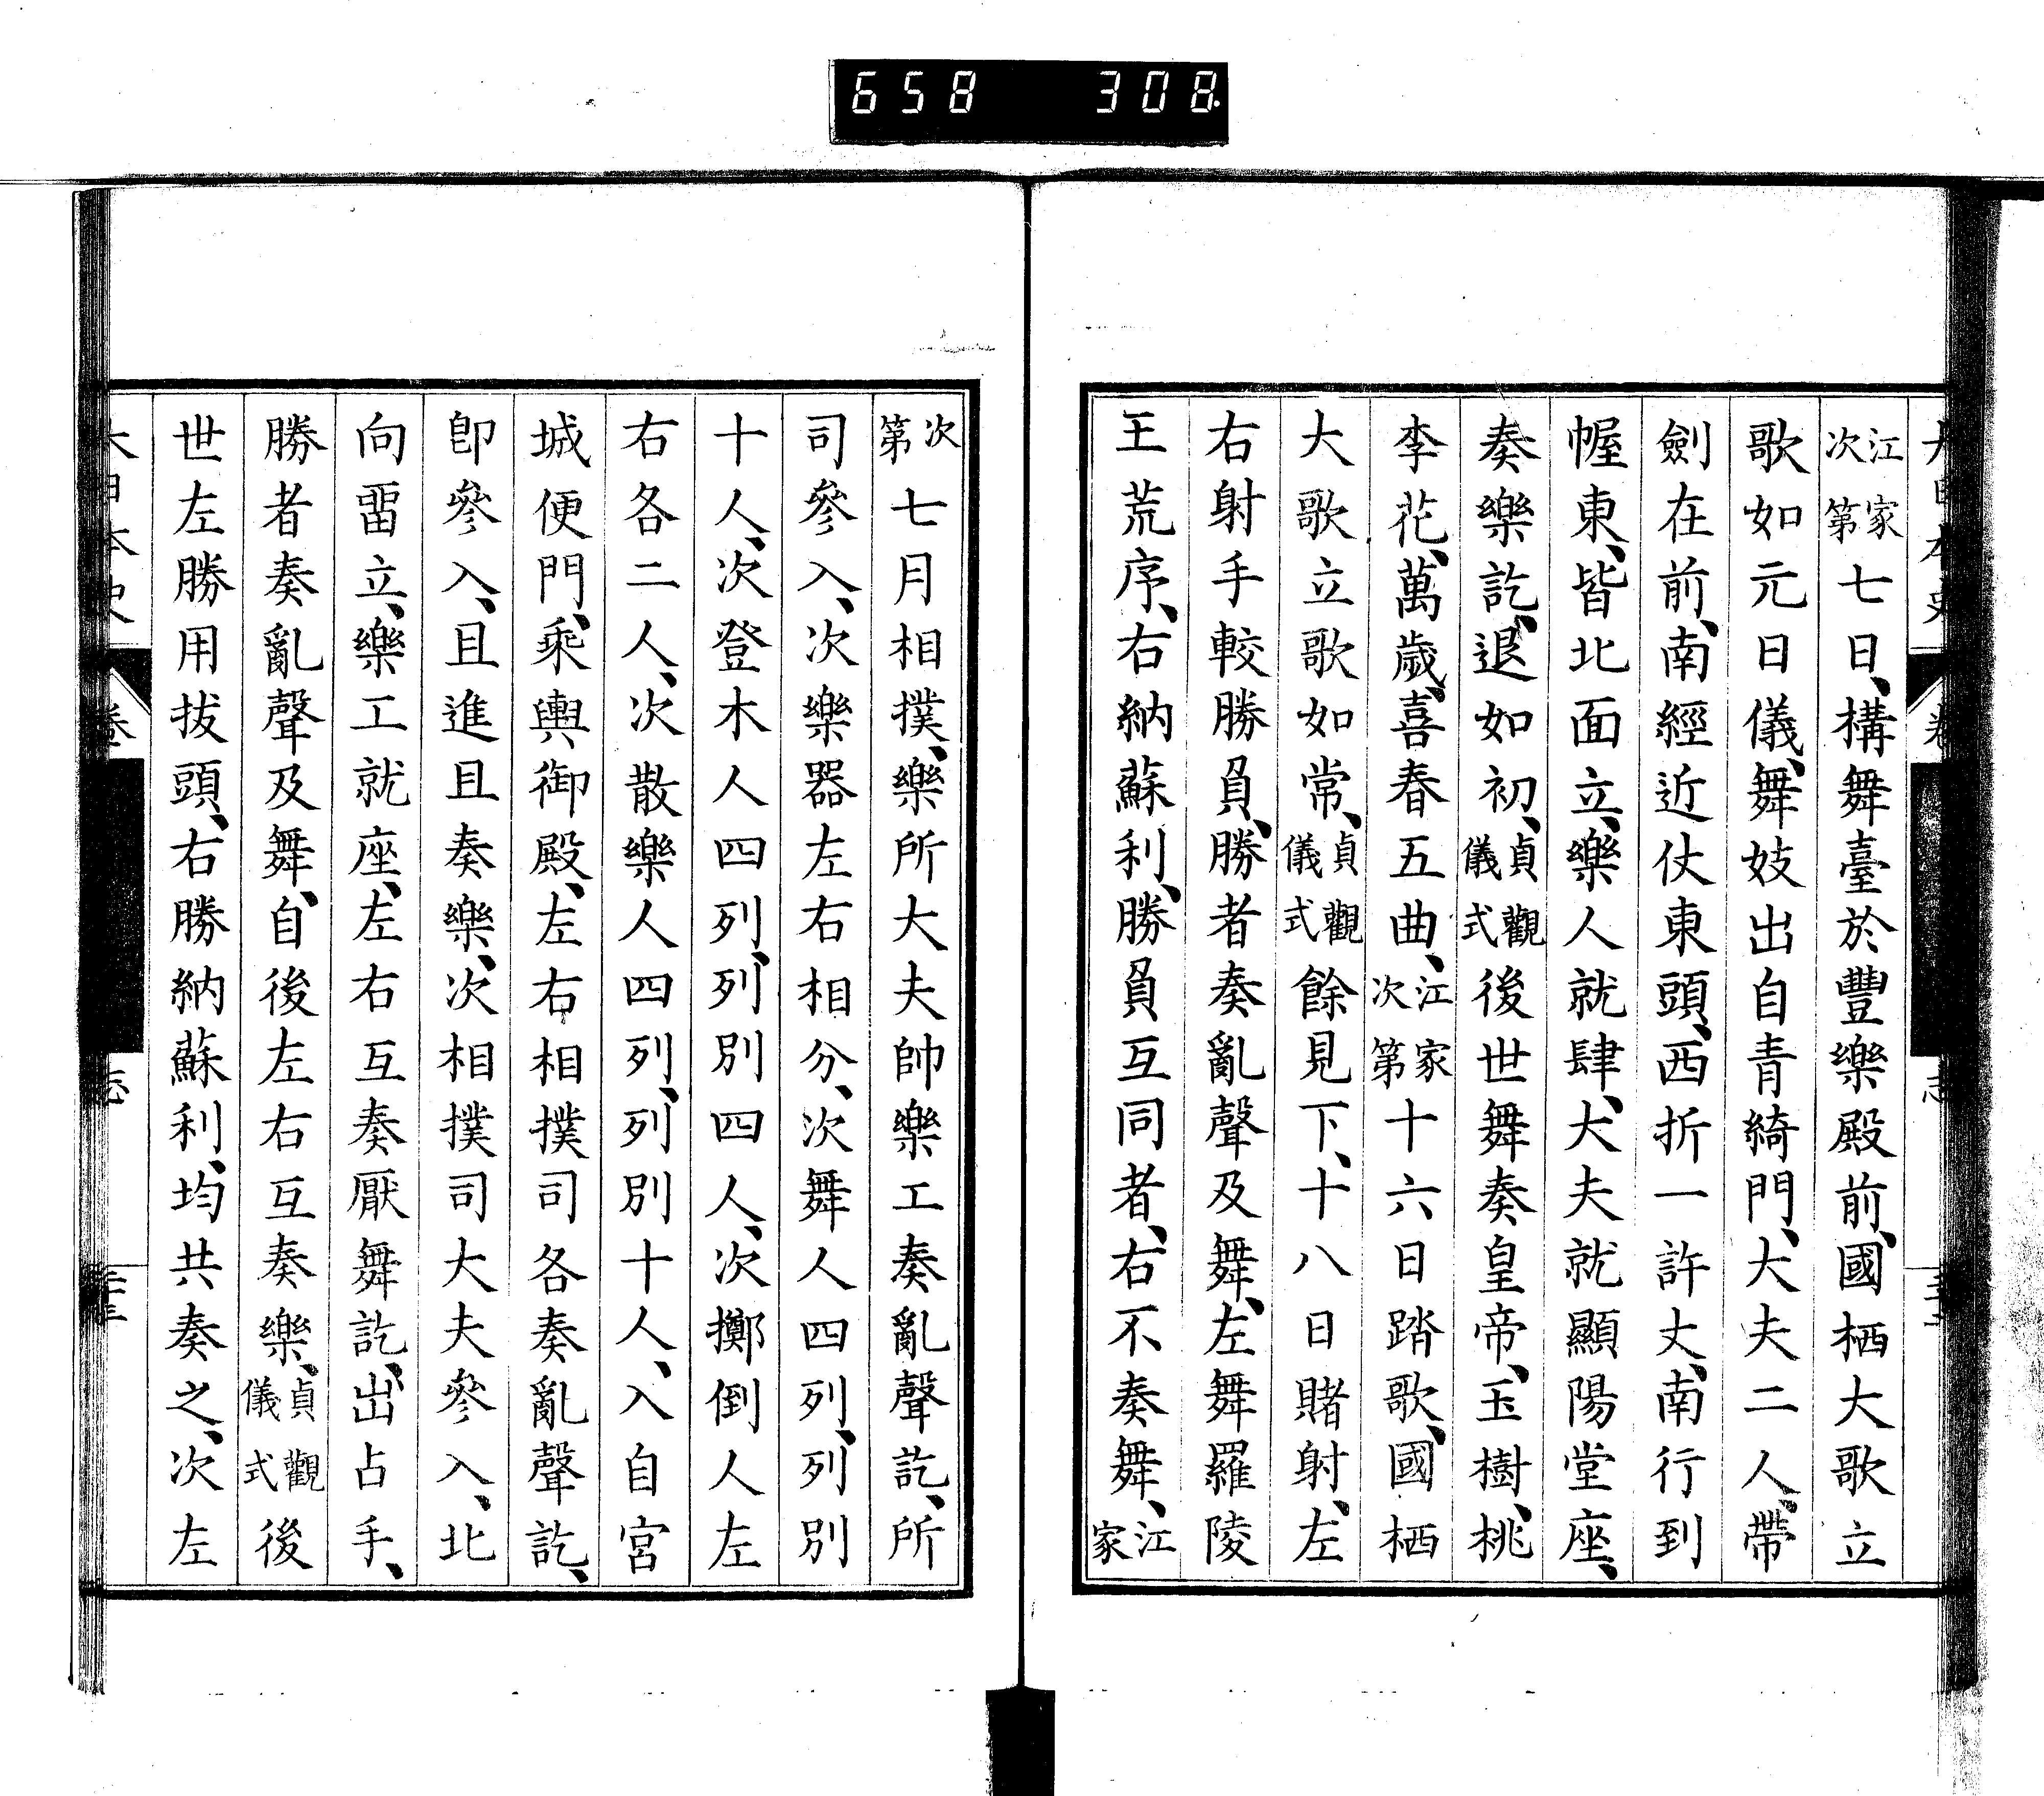 658 308
江家次第七日、構舞臺於豐樂殿前、國栖大歌立
歌如元日儀、舞妓出自青綺門、大夫二人、帶
劍在前、南經近仗東頭、西折一許丈、南行到
幄東、皆北面立、樂人就肆、大夫就顯陽堂座、
奏樂訖、退如初、貞觀儀式後世舞奏皇帝、玉樹、桃
李花、萬歲、喜春五曲、江家次第十六日踏歌、國栖
大歌立歌如常、貞觀儀式餘見下、十八日賭射、左
右射手較勝負、勝者奏亂聲及舞、左舞羅陵
王荒序、右納蘇利、勝負互同者、右不奏舞、江家
次第七月相撲、樂所大夫帥樂工奏亂聲訖、所
司參入、次樂器左右相分、次舞人四列、列別
十人、次登木人四列、列別四人、次擲倒人左
右各二人、次散樂人四列、列別十人、入自宮
城便門、乘輿御殿、左右相撲司各奏亂聲訖、
卽參入、且進且奏樂、次相撲司大夫參入、北
向畱立、樂工就座、左右互奏厭舞訖、出占手、
勝者奏亂聲及舞、自後左右互奏樂、貞觀儀式後
世左勝用拔頭、右勝納蘇利、均共奏之、次左
大日本史 卷 志